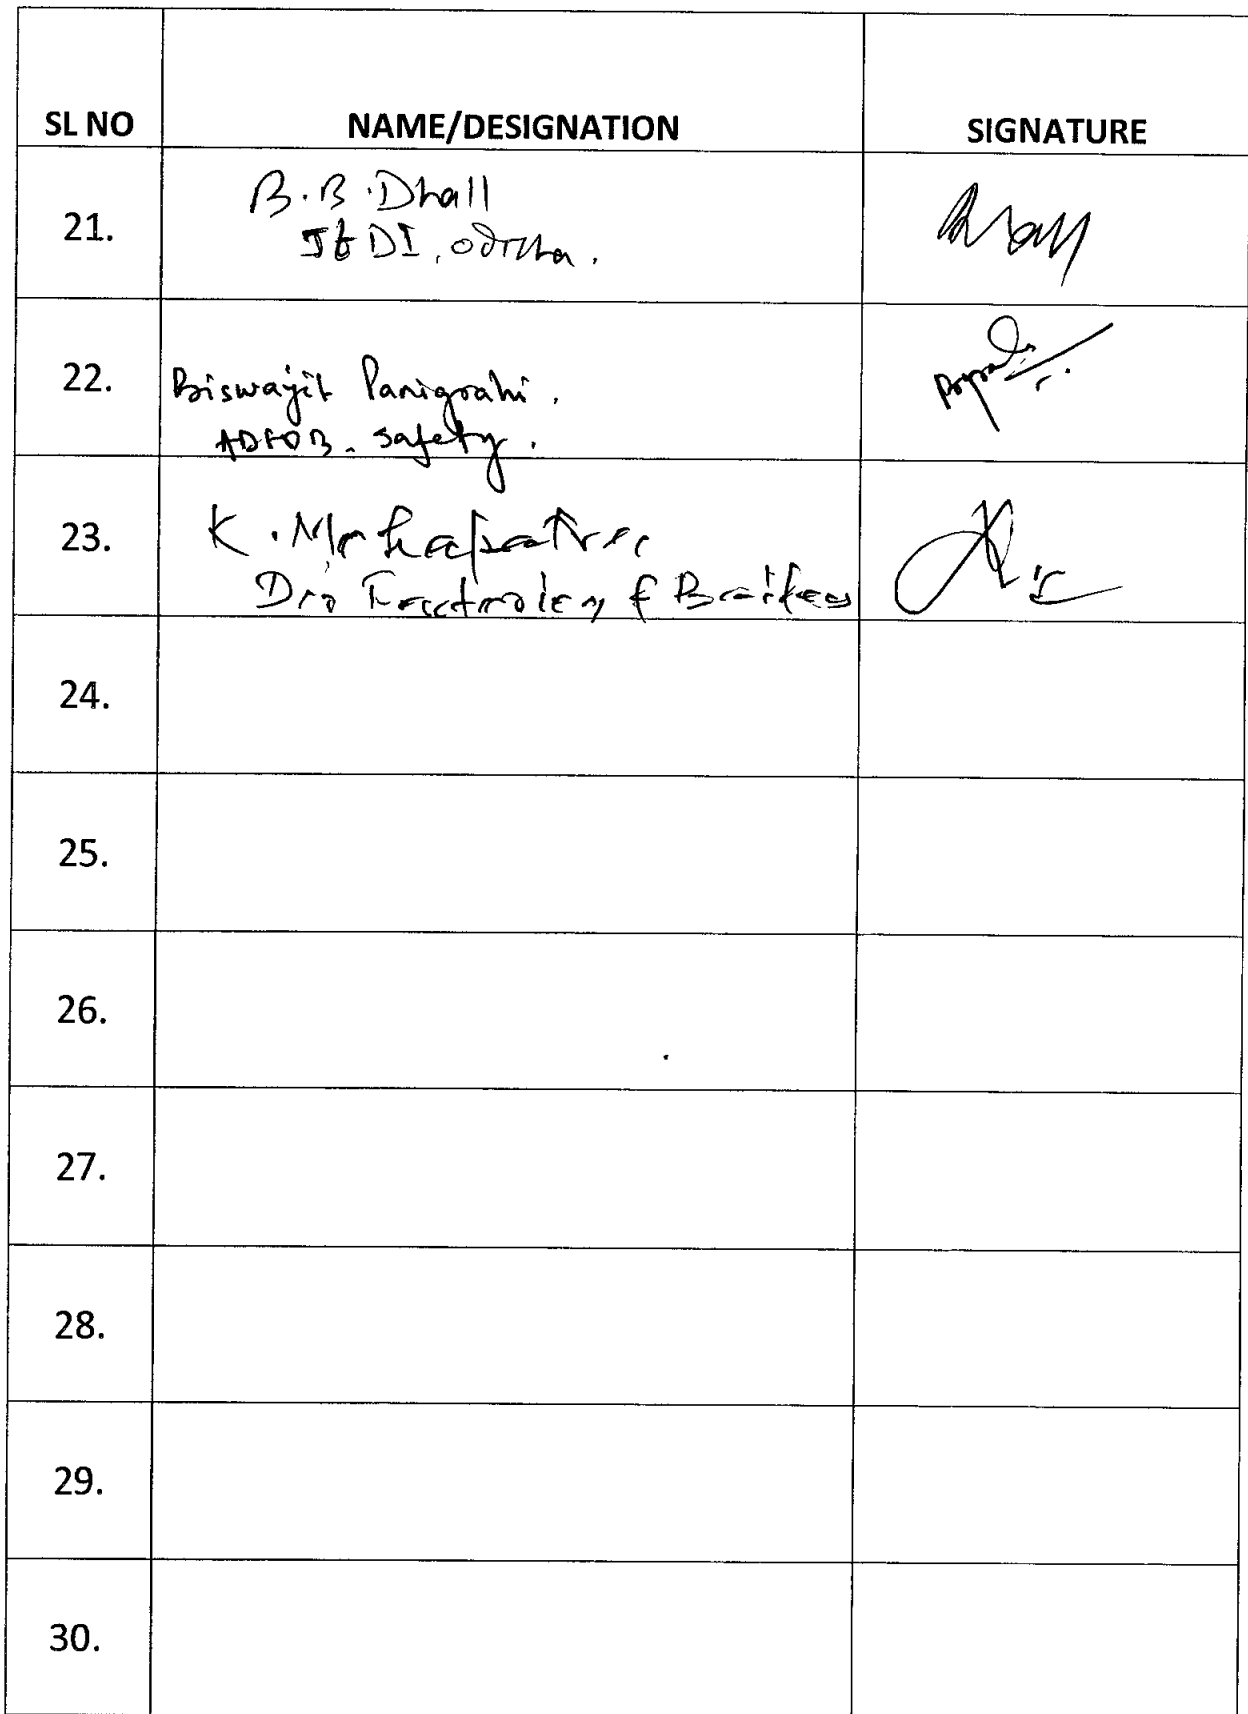 SL NO NAME/DESIGNATION SIGNATURE
21. B.B. Dhall
Jt DI, Odisha.
22. Biswajit Panigrahi.
Safety.
23. K. Mohapatra
Factories & Boilers
24.
25.
26.
27.
28.
29.
30.